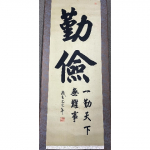 勤儉
一勤天下
無難事